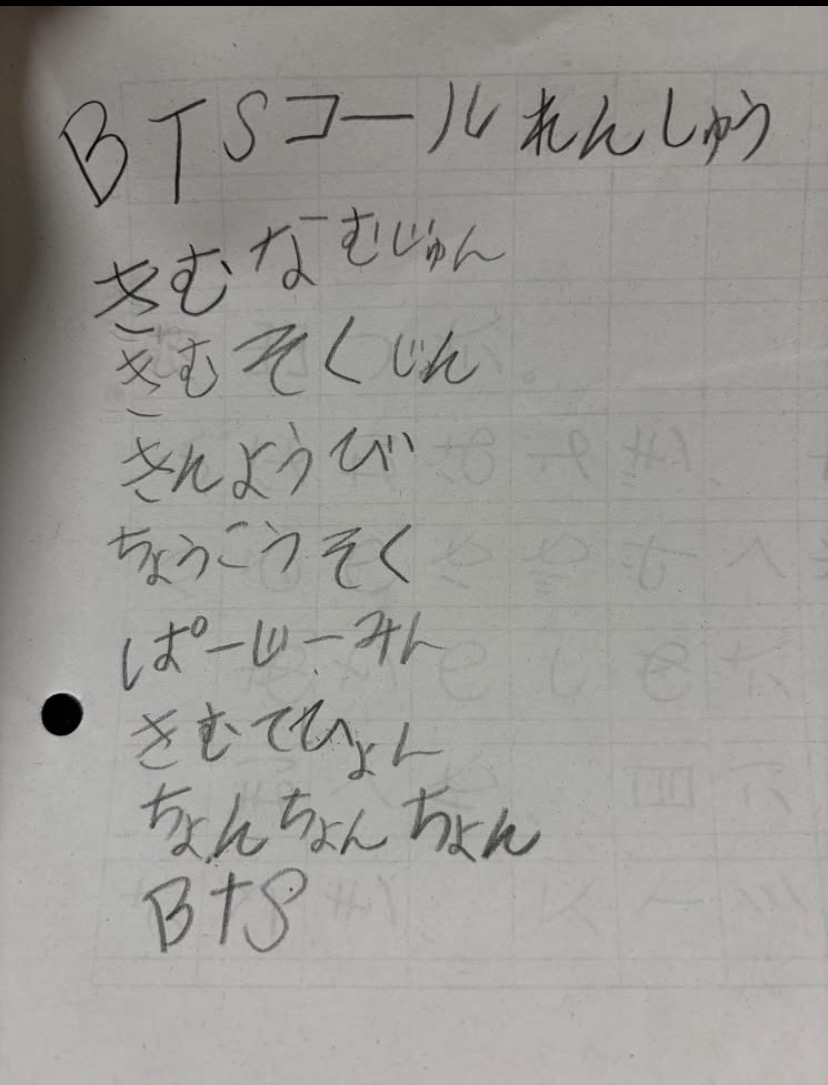 BTSコールれんしゅう
きむなーむじゅん
きむそくじん
きんようび
ちょうこうそく
ぱーじーみん
きむてひょん
ちょんちょんちょん
BTS